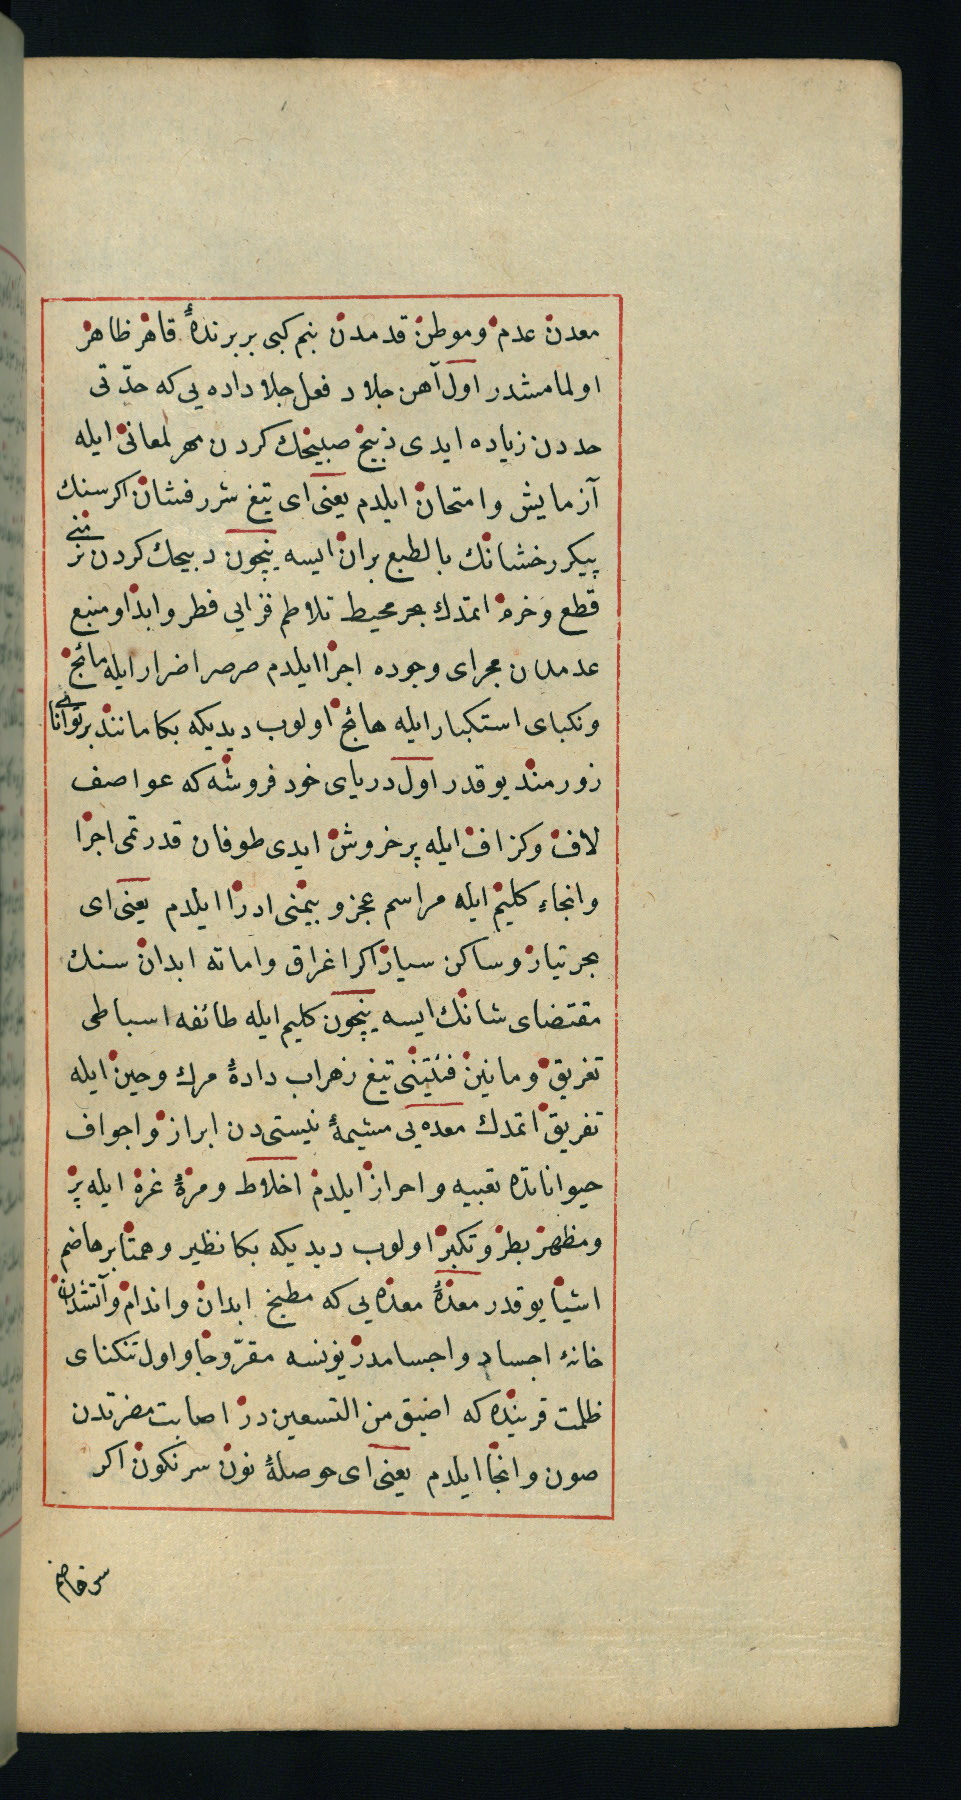 معدن عدم و موطن قدمدن بنم كبی بر برندهٔ قاهر ظاهر
اولمامشدر اول آهن جلاد فعل جلا داده یی كه حدّتی
حددن زیاده ایدی ذبیح صبیحك كردن مهر لمعانی ایله
آزمایش و امتحان ایلدم یعنی ای تیغ شررفشان اكر سنك
پیكر رخشانك بالطبع بران ایسه نیچون ذبیحك كردن
قطع و خرم اتمدك بحر محیط تلاطم فزایی فطر و ابداو منبع
عدمدن مجرای وجوده اجرا ایلدم صرصر اضرار ایله مائج
و نكبای استكبار ایله هائج اولوب دیدیكه بكا مانند بر توانا
زورمند یوقدر اول دریای خود فروشه كه عواصف
لاف و كزاف ایله پر خروش ایدی طوفان قدرتمی اجرا
و انجاء كلیم ایله مراسم عجز و بیمنی ادرا ایلدم یعنی ای
بحر تیار و ساكن سیار اكر اغراق و اماته ابدان سنك
مقتضای شانك ایسه نیچون كلیم ایله طائفه اسباطی
تفریق و مابین فئتینی تیغ زهراب دادهٔ مرك و حین ایله
تفریق اتمدك معده یی مشیمهٔ نیستی دن ابراز و اجواف
حیواناتده تعبیه و احراز ایلدم اخلاط و مرّهٔ غره ایله پر
و مظهر بطر و تكبر اولوب دیدیكه بكا نظیر و همتا بر هاضم
اشیا یوقدر معدهٔ معده یی كه مطبخ ابدان و اندام و آتشدان
خانهٔ اجساد و اجسامدر یونسه مقرّ و جا و اول تنكنای
ظلمت قرینده كه اضیق من التسعین در اصابت مضرتدن
صون و انجا ایلدم یعنی ای حوصلهٔ نون سرنكون اكر